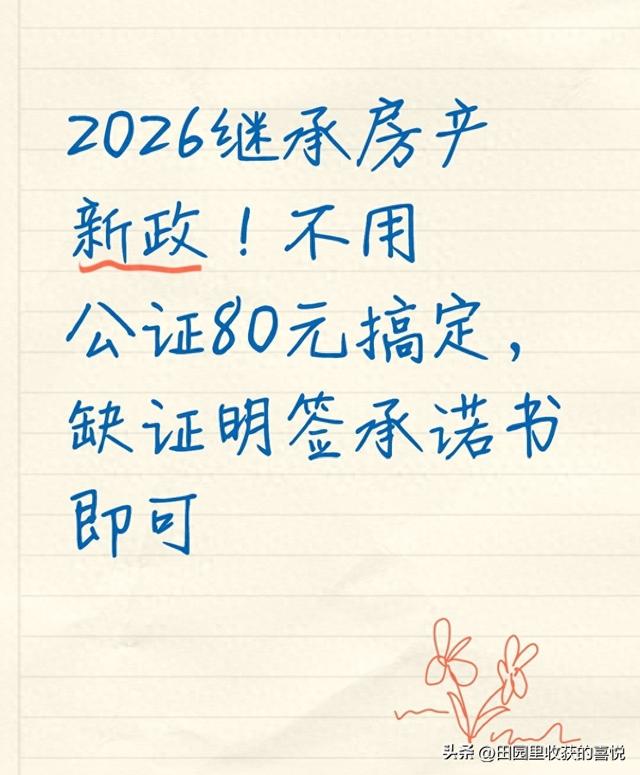 2026继承房产
新政！不用
公证80元搞定，
缺证明签承诺书
即可
头条 @田园里收获的喜悦